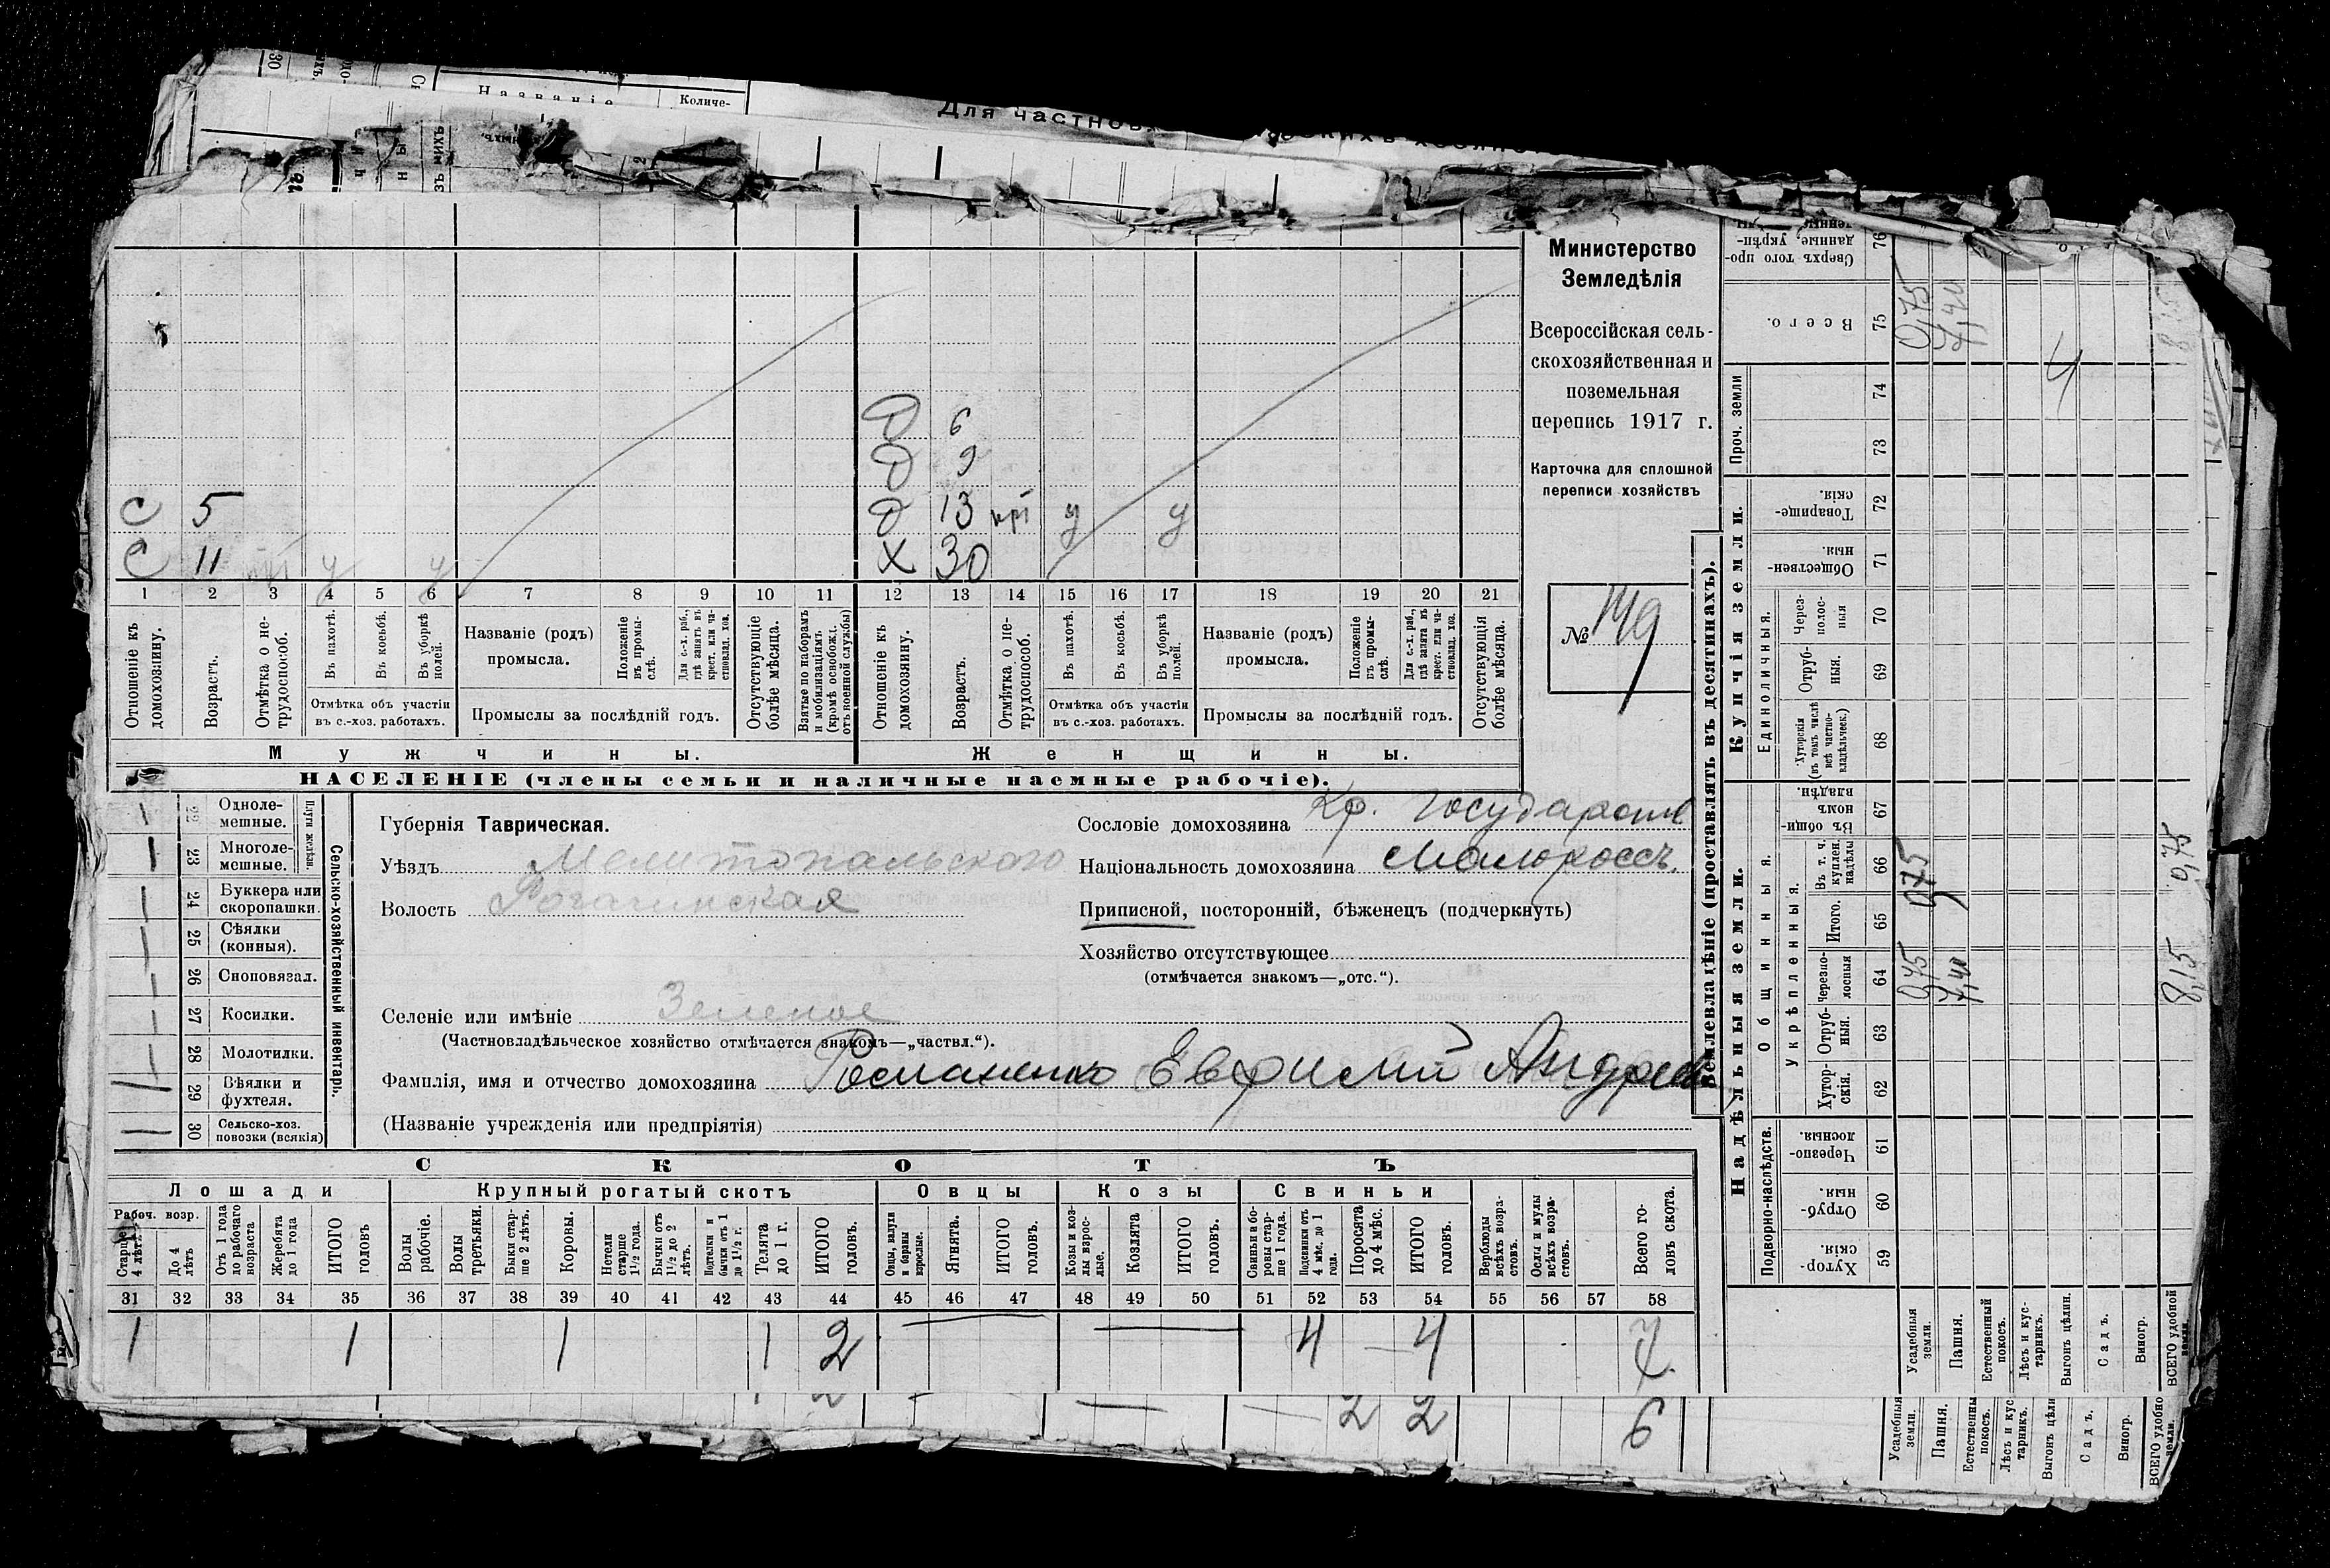 Названіе
Количе-
Для частнов
Министерство
Земледѣлія
Всероссійская сель-
скохозяйственная и
поземельная
перепись 1917 г.
Карточка для сплошной
переписи хозяйствъ
№ 149
Д 6
Д 9
С 5
Д 13 у у
С 11 у у
Х 30
1 2 3 4 5 6 7 8 9 10 11 12 13 14 15 16 17 18 19 20 21
Отношеніе къ домохозяину.
Возрастъ.
Отмѣтка о не-трудоспособ.
Въ пахотѣ.
Въ косьбѣ.
Въ уборкѣ полей.
Отмѣтка объ участіи
въ с.-хоз. работахъ.
Названіе (родъ)
промысла.
Положеніе въ промы-слѣ.
Для с.-х. раб., гдѣ занятъ въ крест. или ча-стновлад. хоз.
Промыслы за послѣдній годъ.
Отсутствующіе болѣе мѣсяца.
Взятые по наборамъ и мобилизаціямъ (кромѣ освобожд. отъ военной службы)
Отношеніе къ домохозяину.
Возрастъ.
Отмѣтка о не-трудоспособ.
Въ пахотѣ.
Въ косьбѣ.
Въ уборкѣ полей.
Отмѣтка объ участіи
въ с.-хоз. работахъ.
Названіе (родъ)
промысла.
Положеніе въ промы-слѣ.
Для с.-х. раб., гдѣ занята въ крест. или ча-стновлад. хоз.
Промыслы за послѣдній годъ.
Отсутствующія болѣе мѣсяца.
Мужчины.
Женщины.
НАСЕЛЕНІЕ (члены семьи и наличные наемные рабочіе).
Сельско-хозяйственный инвентарь.
Плуги желѣзн.
Одноле-
мешные.
23 Многоле-
мешные.
24 Буккера или
скоропашки.
25 Сѣялки
(конныя).
26 Сноповязал.
27 Косилки.
28 Молотилки.
29 Вѣялки и
фухтеля.
30 Сельско-хоз.
повозки (всякія)
Губернія Таврическая.
Уѣздъ Мелитопольского
Волость Рогачинская
Селеніе или имѣніе Зеленое
(Частновладѣльческое хозяйство отмѣчается знакомъ—„частвл.“).
Фамилія, имя и отчество домохозяина Романенко Евфимій Андреев
(Названіе учрежденія или предпріятія)
Сословіе домохозяина Кр. Государств
Національность домохозяина Малороссъ.
Приписной, посторонній, бѣженецъ (подчеркнуть)
Хозяйство отсутствующее
(отмѣчается знакомъ—„отс.“).
СКОТЪ
Лошади
Крупный рогатый скотъ
Овцы
Козы
Свиньи
Рабоч. возр.
Старше 4 лѣтъ
До 4 лѣтъ
Отъ 1 года до рабочаго возраста
Жеребята до 1 года
ИТОГО головъ
Волы рабочіе.
Волы третьяки.
Быки стар-ше 2 лѣтъ.
Коровы.
Нетели старше 1½ года.
Бычки отъ 1½ до 2 лѣтъ.
Подтелки и бычки отъ 1 до 1½ г.
Телята до 1 г.
ИТОГО головъ.
Овцы, валухи и бараны взрослые.
Ягнята.
ИТОГО головъ.
Козы и коз-лы взрос-лые.
Козлята
ИТОГО головъ.
Свиньи и бо-ровы стар-ше 1 года.
Подсвинки отъ 4 мѣс. до 1 года.
Поросята до 4 мѣс.
ИТОГО головъ.
Верблюды всѣхъ возра-стовъ.
Ослы и мулы всѣхъ возра-стовъ.
Всего го-ловъ скота.
31 32 33 34 35 36 37 38 39 40 41 42 43 44 45 46 47 48 49 50 51 52 53 54 55 56 57 58
1 1 1 1 2 4 4 7
2 2 6
Землевладѣніе (проставлять въ десятинахъ).
Купчія земли.
Надѣльныя земли.
Сверхъ того про-данные, укрѣп-ленные
76
Всего.
75
0,75
7,40
4
Проч. земли
74
73
Товарище-скія.
72
Обществен-ныя.
71
Единоличныя.
Через-полос-ныя
70
Отруб-ныя.
69
Хуторскія (въ томъ числѣ всѣ частно-владѣльческ.)
68
Общинныя.
Въ общи-нномъ владѣн.
67
Укрѣпленныя.
Въ т. ч. куплен. надѣлы
66
Итого.
65
Черезпо-лосныя
64
Отруб-ныя.
63
Хутор-скія.
62
0,75
0,75
0,75
7,40
8,15
Подворно-наслѣдств.
Черезпо-лосныя.
61
Отруб-ныя.
60
Хутор-скія.
59
Усадебныя земли.
Пашня.
Естественный покосъ.
Лѣсъ и кус-тарникъ.
Выгонъ цѣлин.
Садъ.
Виногр.
ВСЕГО удобной земли.
Усадебныя земли.
Пашня.
Естественны покосъ.
Лѣсъ и кус тарникъ.
Выгонъ цѣли
Садъ.
Виногр.
ВСЕГО удобно земли.